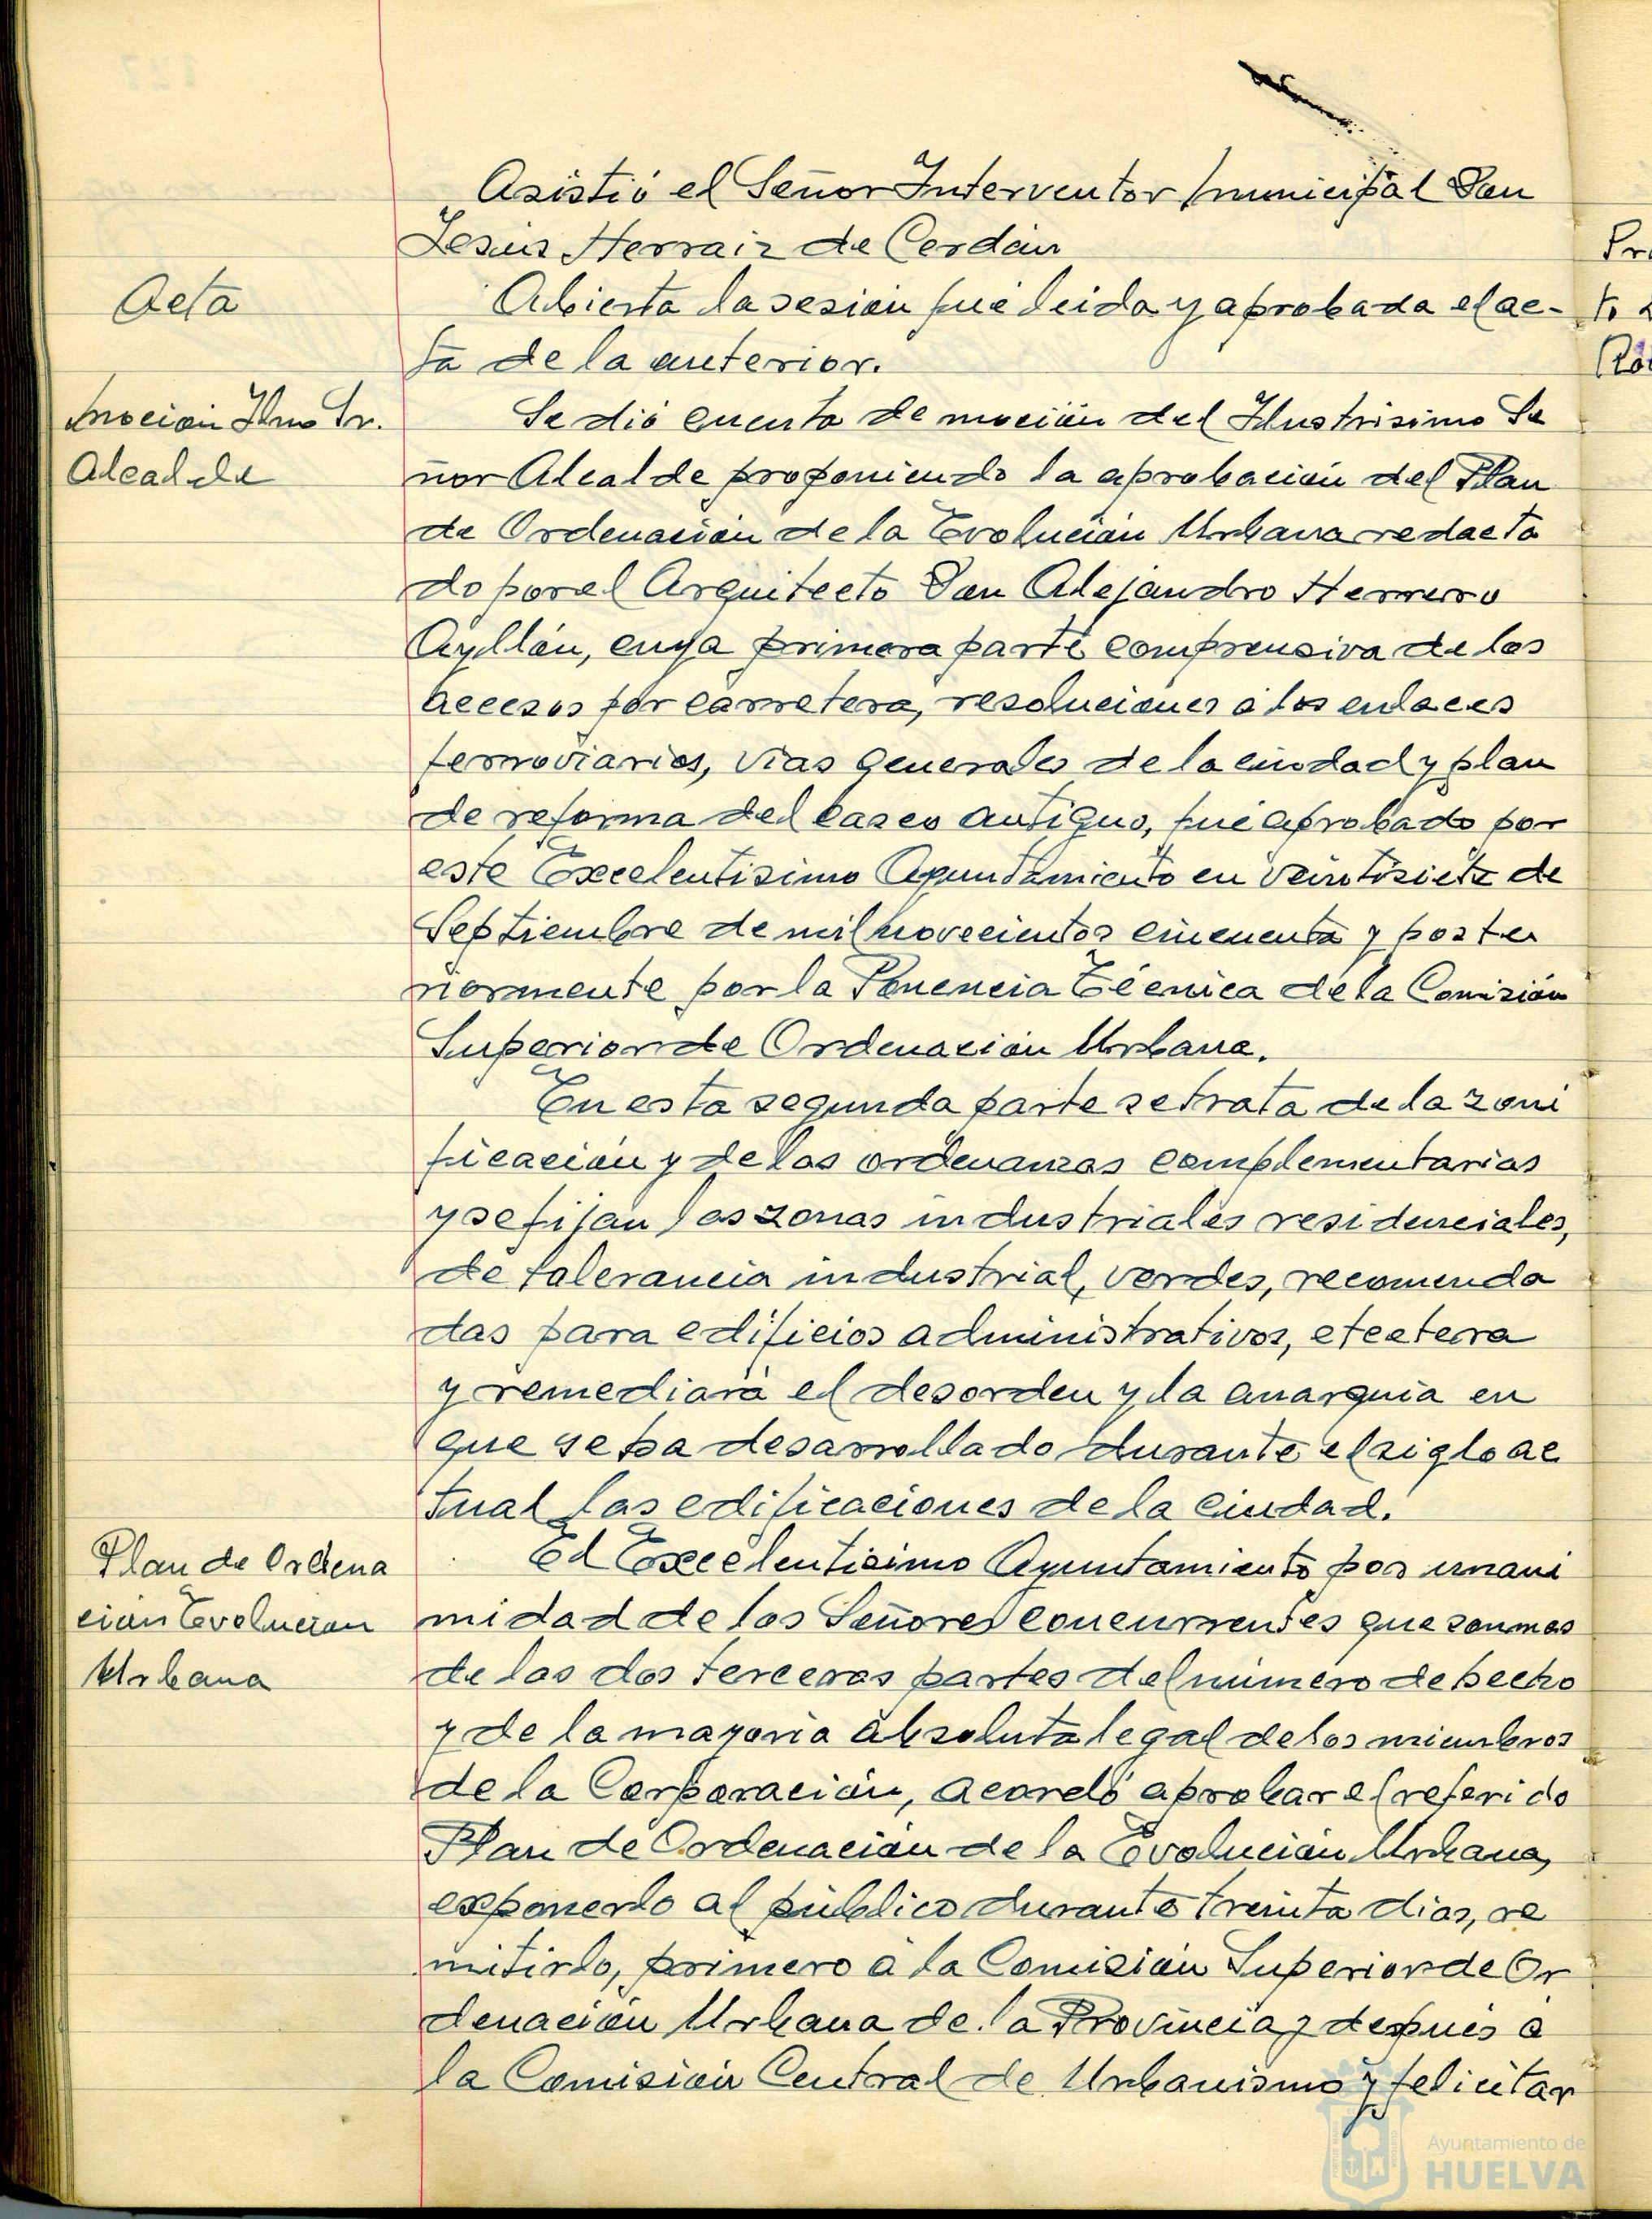 Asistió el Señor Interventor municipal Don
Jesús Herraiz de Cerdán
Acta
Abierta la sesión fué leida y aprobada el ac-
ta de la anterior.
Moción Ilmo Sr.
Alcalde
Se dió cuenta de moción del Ilustrisimo Se
ñor Alcalde proponiendo la aprobación del Plan
de Ordenación de la Evolución Urbana redacta
do por el Arquitecto Don Alejandro Herrero
Ayllón, cuya primera parte comprensiva de los
accesos por carretera, resoluciones a los enlaces
ferroviarios, vias generales de la ciudad y plan
de reforma del casco antiguo, fué aprobado por
este Excelentisimo Ayuntamiento en veintisiete de
Septiembre de mil novecientos cincuenta y poste
riormente por la Ponencia Técnica de la Comisión
Superior de Ordenación Urbana.
En esta segunda parte se trata de la zoni
ficación y de las ordenanzas complementarias
y se fijan las zonas industriales residenciales,
de tolerancia industrial, verdes, recomenda
das para edificios administrativos, etcetera
y remediará el desorden y la anarquia en
que se ha desarrollado durante el siglo ac
tual las edificaciones de la ciudad.
Plan de Ordena
ción Evolución
Urbana
El Excelentisimo Ayuntamiento por unani
midad de los Señores concurrentes que son mas
de las dos terceras partes del número de hecho
y de la mayoria absoluta legal de los miembros
de la Corporación, acordó aprobar el referido
Plan de Ordenación de la Evolución Urbana,
exponerlo al público durante treinta dias, re
mitirlo, primero a la Comisión Superior de Or
denación Urbana de la Provincia y después a
la Comisión Central de Urbanismo y felicitar
Ayuntamiento de
HUELVA